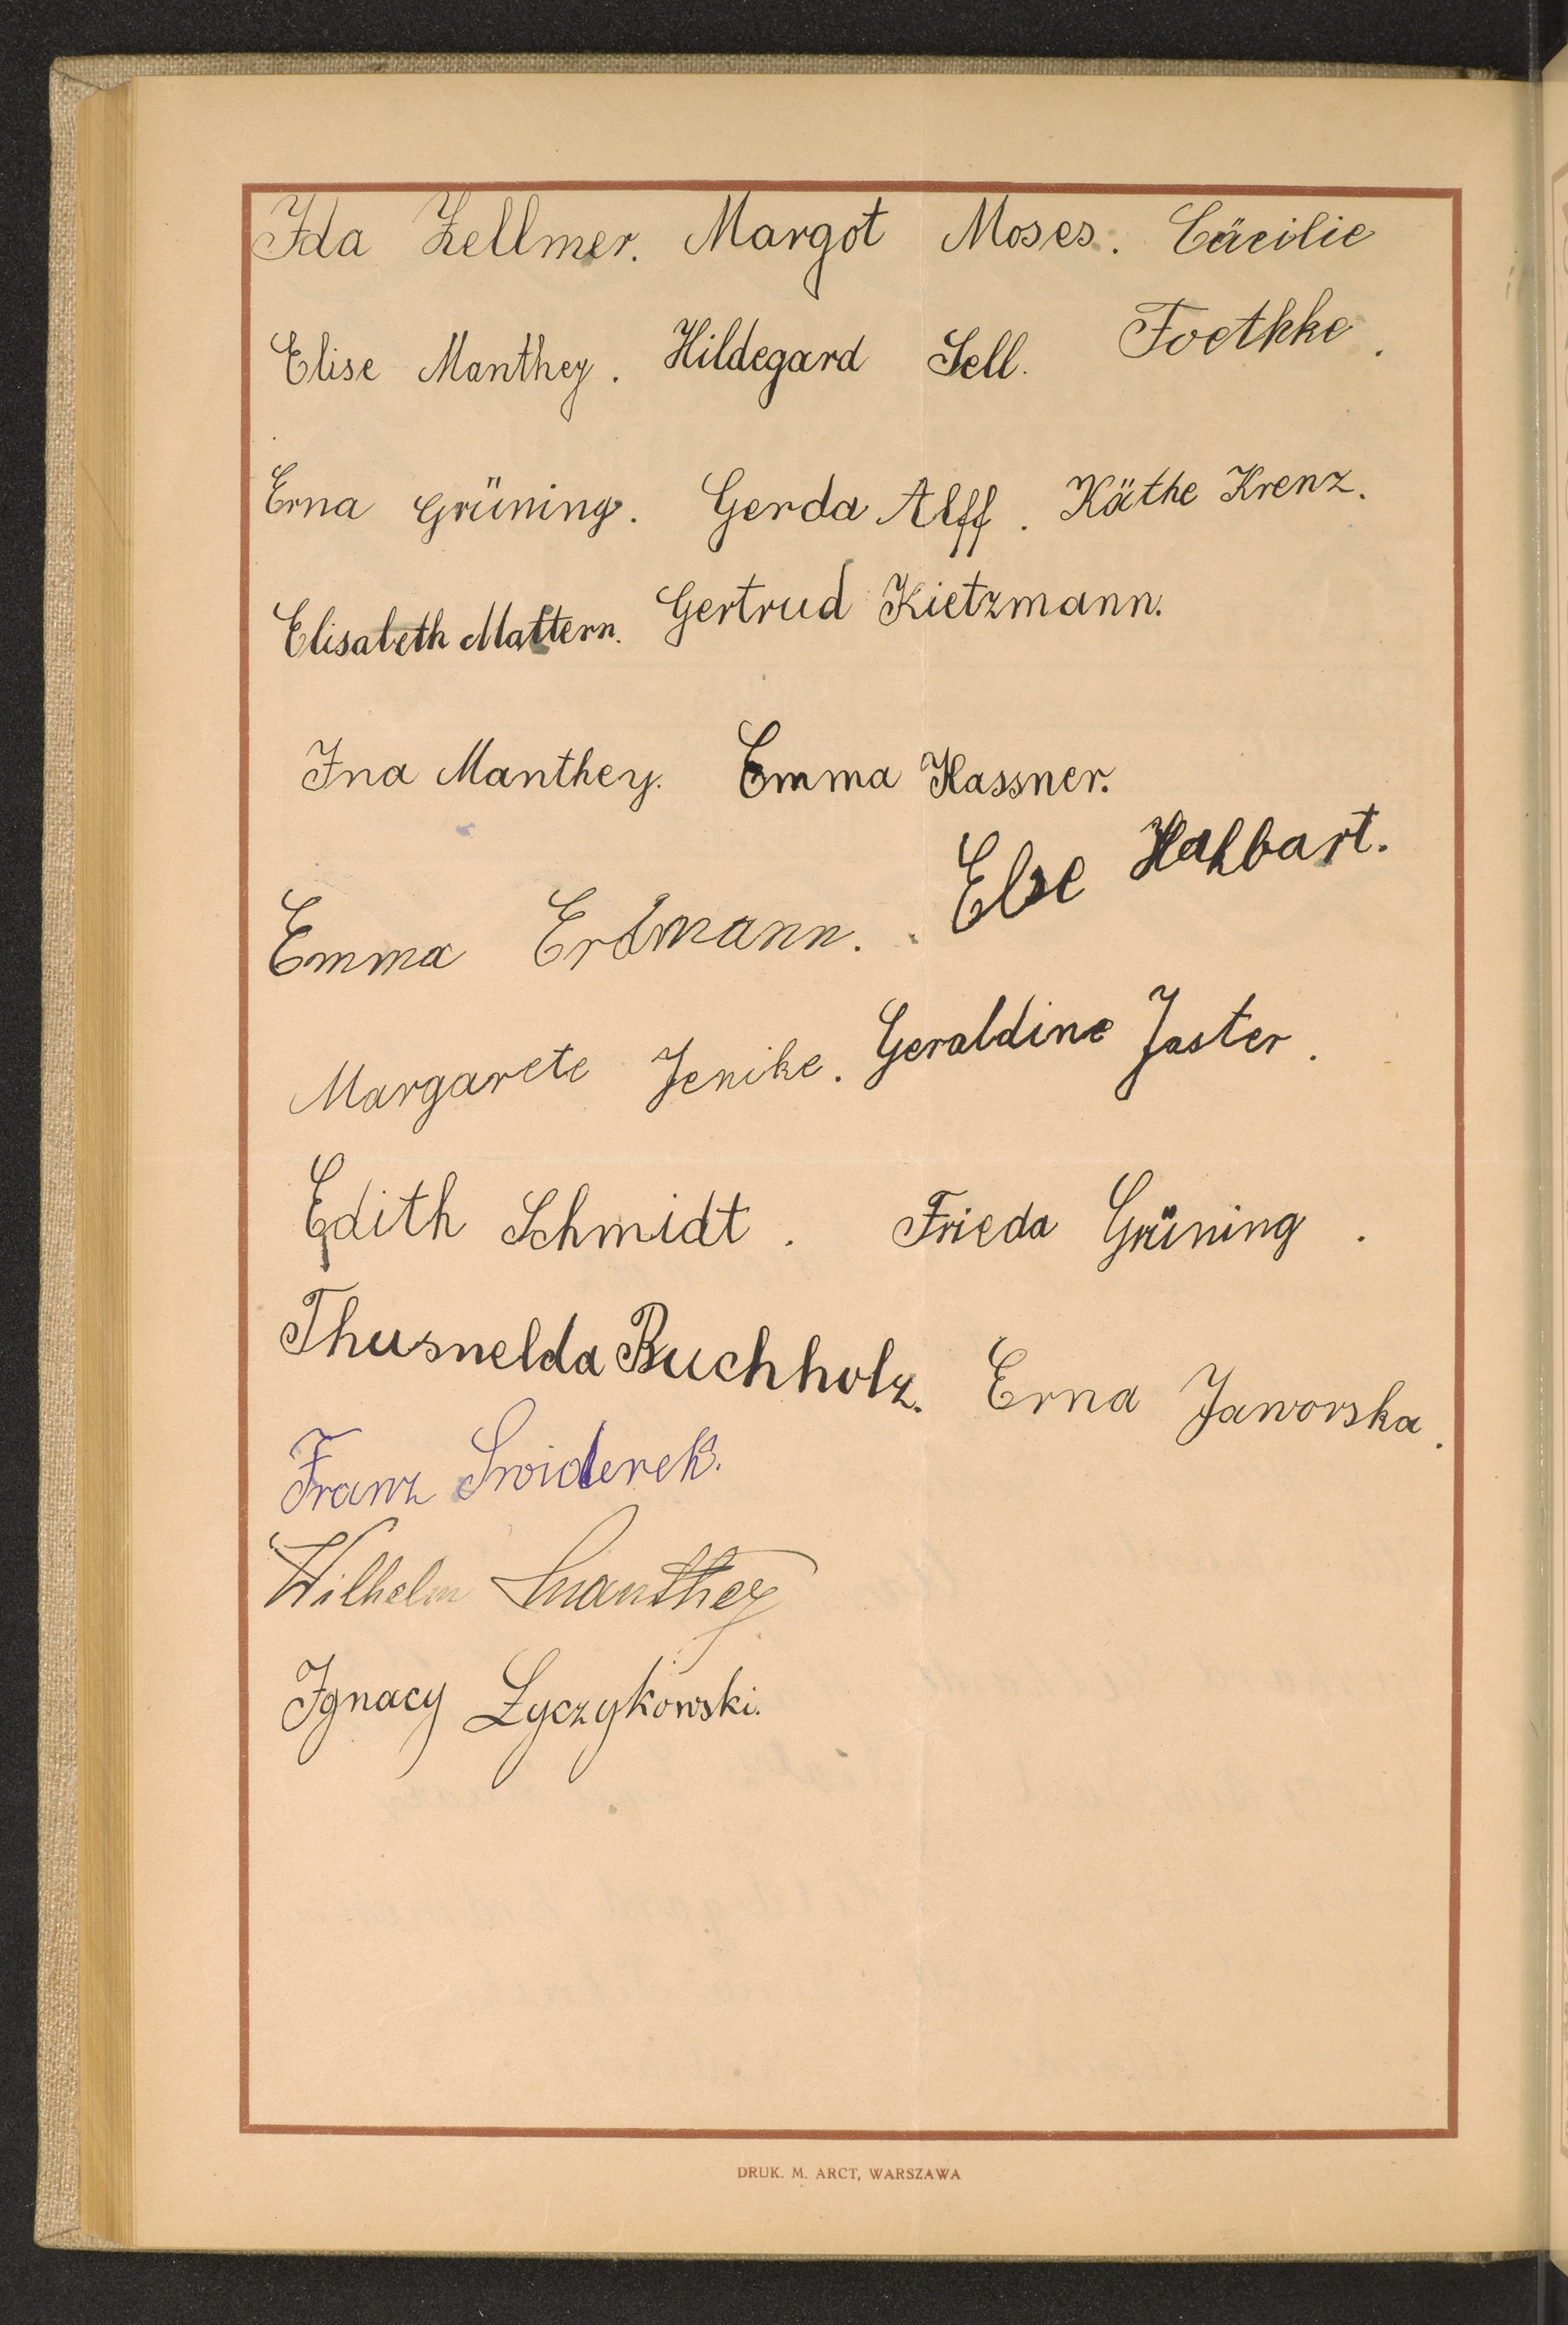 Ida Zellmer. Margot Moses. Cäcilie
Foethke.
Elise Manthey. Hildegard Sell.
Erna Grüning. Gerda Alff. Käthe Krenz.
Elisabeth Mattern. Gertrud Kietzmann.
Ina Manthey. Emma Kassner.
Emma Erdmann. Else Hahbart.
Margarete Jenike. Geraldine Jaster.
Edith Schmidt. Frieda Grüning.
Thusnelda Buchholz. Erna Jaworska.
Franz Swiderek.
Wilhelm Manthey
Ignacy Łyczykowski.
DRUK. M. ARCT, WARSZAWA